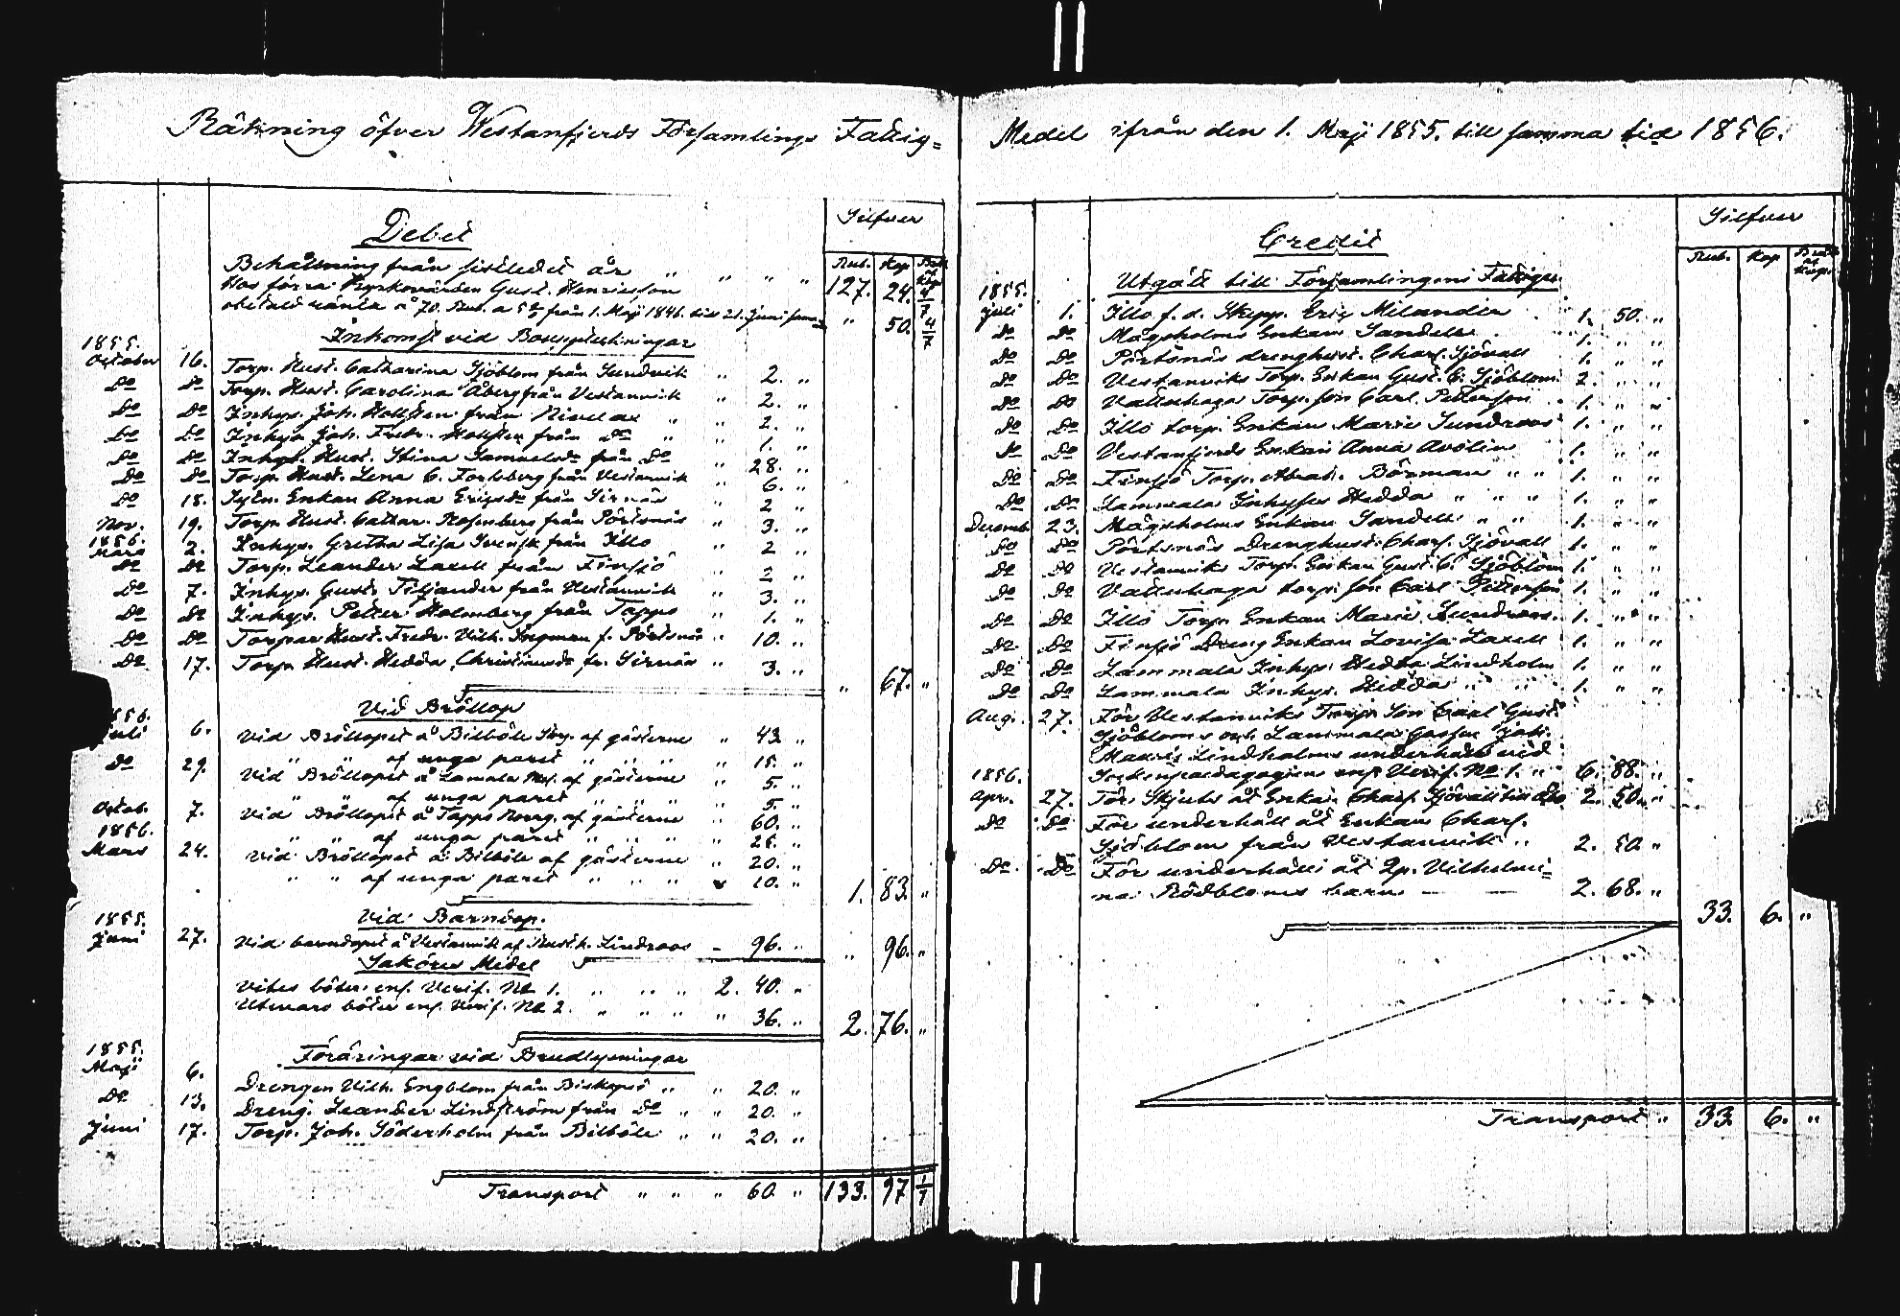 Räkning öfver Westanfjerds Församlings Fattig=
Debet
Silfver
Rub. Kop Bråk af Kop
Behållning från sistledet år " " " " 127. 24. 4/7
Hos förra Kyrkovärden Gust. Henricsson
obetald ränta å 70. Rub. a 5 % från 1. Maji 1846. till 21. Juni samma " 50. 4/7
Inkomst vid Bouppteckningar
1855.
October 16. Torp. Hust. Catharina Sjöblom från Sundvik " 2. "
Do Do Torp. Hust. Carolina Åberg från Vestanvik " 2. "
Do Do Inhys. Joh. Hollsten från Nivelax " 2. "
Do Do Inhys. Joh. Fredr. Hollsten från Do " 1. "
Do Do Inhys. Hust. Stina Samuelsdr från Do " 28. "
Do Do Torp. Hust. Lena C. Forsberg från Vestanvik " 6. "
Do 18. Sytn. Enkan Anna Ericsdr från Sirnäs " 2 "
Nov. 19. Torp. Hust. Cathar. Rosenberg från Pörtsnäs " 3. "
1856.
Mars 2. Inhys. Gretha Lisa Svensk från Illo " 2 "
Do Do Torp. Leander Laxell från Finsjö " 2 "
Do 7. Inhys. Gust. Tiljander från Vestanvik " 3. "
Do Do Inhys. Petter Holmberg från Tappo " 1. "
Do Do Torpar Hust. Fredr. Vilh. Ingman f. Pörtsnäs " 10. "
Do 17. Torp. Hust. Hedda Christiansdr fr. Sirnäs " 3. "
" 67. "
Vid Bröllop
1856.
Juli 6. Vid Bröllopet å Billböle Skog. af gästerne " 43 "
" " af unga paret " " " 15. "
Do 29. Vid Bröllopet å Lamala af gästerne " 5. "
" " af unga paret " " " 5. "
Octob. 7. Vid Bröllopet å Tappo Norrg. af gästerne " 60. "
" " af unga paret " " " 25. "
1856.
Mars 24. Vid Bröllopet å Billböle af gästerne " 20. "
" " af unga paret " " " 10. "
1. 83. "
Vid Barndop.
1855.
Juni 27. Vid barndopet å Vestanvik af Rusth. Lindroos - 96. " " 96. "
Saköres Medel
Vites böter enl. Verif. No 1. " " " 2. 40. "
Utevaro böter enl. Verif. No 2. " " " 36. " 2. 76. "
Föräringar vid Brudlysningar
1855.
Maji 6. Drengen Vilh. Engblom från Biskopsö " " 20. "
Do 13. Dreng. Leander Lindström från Do " " 20. "
Juni 17. Torp. Joh. Söderholm från Billböle " " 20. "
Transport " " " 60 " 133. 97 1/7
Medel ifrån den 1. Maji 1855. till samma tid 1856.
Credit
Silfver
Rub. Kop Bråk af Kop.
Utgått till Församlingens Fattiga.
1855.
Juli 1. Illo f. d. Skepp. Eric Milander 1. 50. "
Do Do Mågsholms Enkan Sandell 1. " "
Do Do Pörtsnäs drenghust. Charl. Sjövall 1. " "
Do Do Vestanviks Torp. Enkan Gust. C. Sjöblom 2. " "
Do Do Valluhaga Torp. son Carl Petterson 1. " "
Do Do Illo torp. Enkan Maria Sundroos 1. " "
Do Do Vestanfjerds Enkan Anna Avelin 1. " "
Do Do Finsjö Torp. Abrah. Bärman " " 1. " "
Do Do Lammala Inhyses Hedda " " " 1. " "
Decemb. 23. Mågsholms Enkan Sandell " " 1. " "
Do Do Pörtsnäs Drenghust. Charl. Sjövall 1. " "
Do Do Vestanviks Torp. Enkan Gust. C. Sjöblom 1. " "
Do Do Valluhaga torp. son Carl Petterson 1. " "
Do Do Illo Torp. Enkan Maria Sundroos 1. " "
Do Do Finsjö Dreng Enkan Lovisa Laxell 1. " "
Do Do Lammala Inhys. Hedda Lindholm 1. " "
Do Do Lammala Inhys. Hedda " " 1. " "
Aug. 27. För Vestanviks Torp. Son Carl Gust.
Sjöbloms och Lammala Gossen Joh.
Mauris Lindholms underhåll vid
1856. Sockenpædagogien enl. Verif. No 1. " 6. 88. "
Apr. 27. För Skjuts åt Enkan Charl. Sjövall 2. 50. "
Do Do För underhåll åt Enkan Charl.
Sjöblom från Vestanvik " 2. 50. "
Do Do För underhåll åt Qp. Vilhelmi=
na Rödbloms barn 2. 68. "
33. 6. "
Transport " 33. 6. "